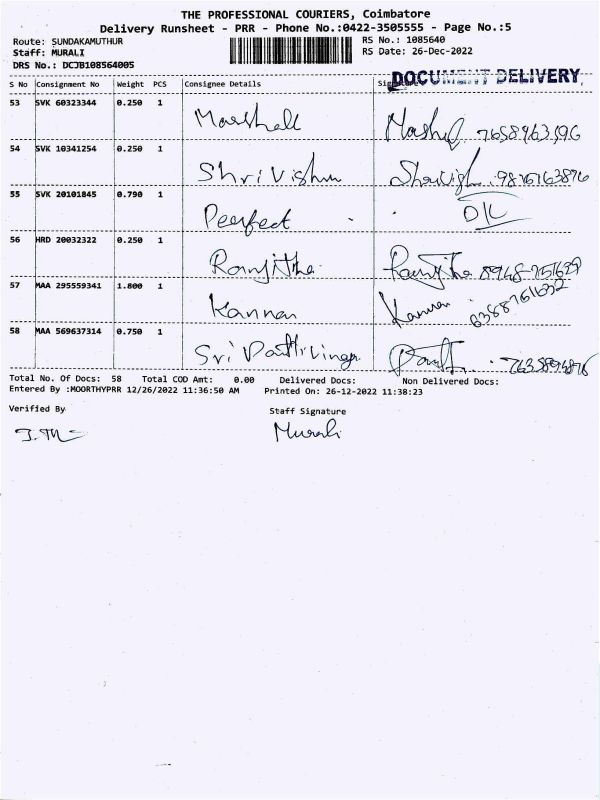 THE PROFESSIONAL COURIERS, Coimbatore
Delivery Runsheet - PRR - Phone No.:0422-3505555 - Page No.:5
Route: SUNDAKAMUTHUR RS No.: 1085640
Staff: MURALI RS Date: 26-Dec-2022
DRS No.: DCJB108564005
DOCUMENT DELIVERY
S No Consignment No Weight PCS Consignee Details
53 SVK 60323344 0.250 1 Marshall
54 SVK 10341254 0.250 1 Shri Vishnu
55 SVK 20101845 0.790 1 Peerfect
56 HRD 20032322 0.250 1 Ranjitha Ranjitha
57 MAA 295559341 1.800 1 Kannan Kannan 6368761632
58 MAA 569637314 0.750 1 Sri
Total No. Of Docs: 58 Total COD Amt: 0.00 Delivered Docs: Non Delivered Docs:
Entered By :MOORTHYPRR 12/26/2022 11:36:50 AM Printed On: 26-12-2022 11:38:23
Verified By Staff Signature
Murali